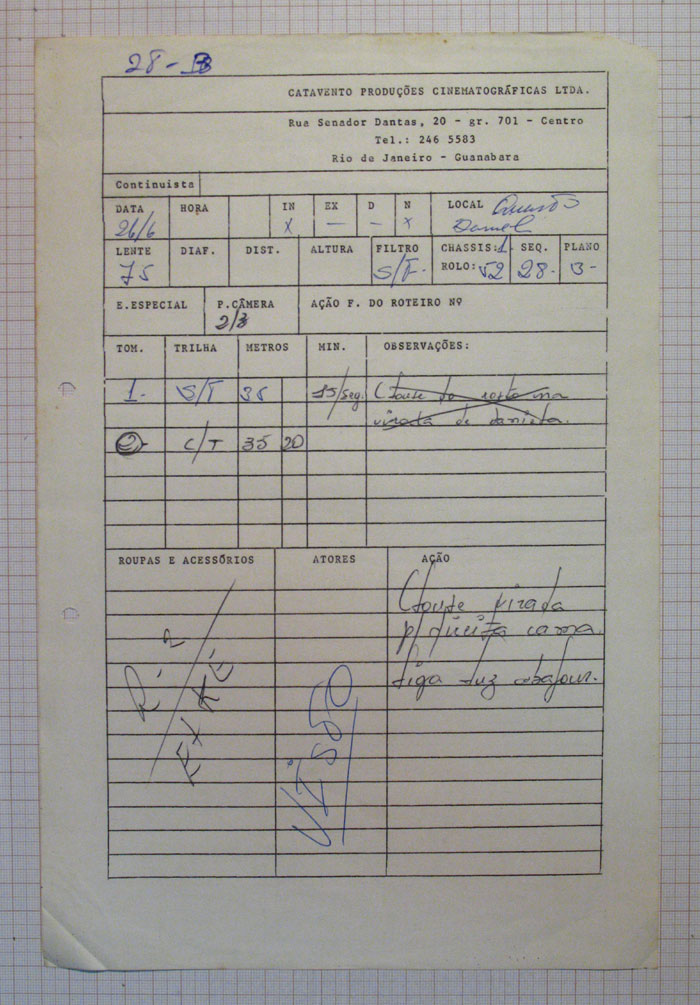 28 - B
CATAVENTO PRODUÇÕES CINEMATOGRÁFICAS LTDA.
Rua Senador Dantas, 20 - gr. 701 - Centro
Tel.: 246 5583
Rio de Janeiro - Guanabara
Continuista
DATA HORA IN EX D N LOCAL Quarto
26/6 X — — X Daniel
LENTE DIAF. DIST. ALTURA FILTRO CHASSIS: 1 SEQ. PLANO
75 S/F- ROLO: 52 28- B-
E.ESPECIAL P.CÂMERA AÇÃO F. DO ROTEIRO Nº
2/3
TOM. TRILHA METROS MIN. OBSERVAÇÕES:
1- S/T 35 15/seg. do rosto na
virada de
2- C/T 35 20
ROUPAS E ACESSÓRIOS ATORES AÇÃO
virada
p/ cama.
liga luz abajour.
R-2
VISÃO